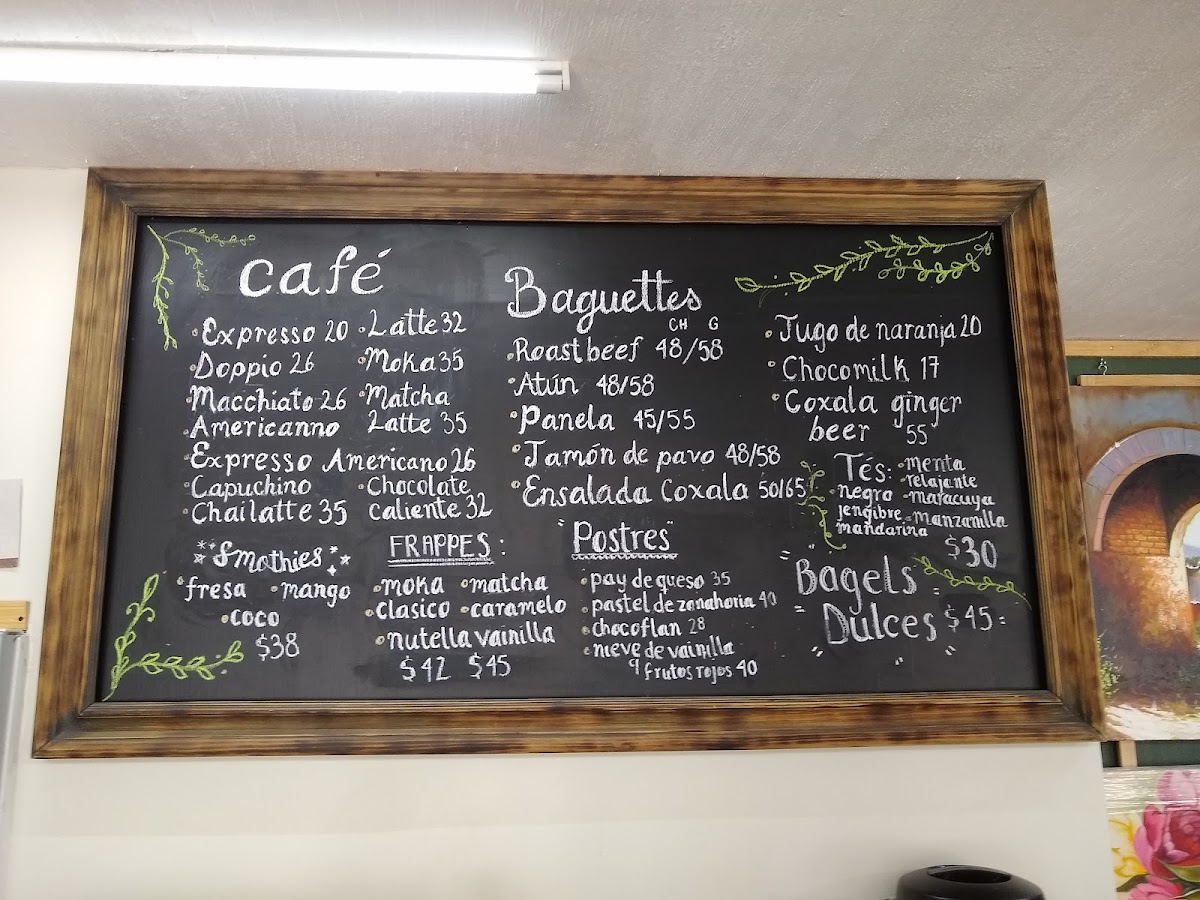 café
Expresso 20
Doppio 26
Macchiato 26
Americanno
Expresso Americano 26
Capuchino
Chailatte 35
Latte 32
Moka 35
Matcha
Latte 35
Chocolate
caliente 32
Smothies
fresa mango
coco
$38
FRAPPES:
moka matcha
clasico caramelo
nutella vainilla
$42 $45
Baguettes
CH G
Roast beef 48/58
Atún 48/58
Panela 45/55
Jamón de pavo 48/58
Ensalada Coxala 50/65
"Postres"
pay de queso 35
pastel de zanahoria 40
chocoflan 28
nieve de vainilla
y frutos rojos 40
Jugo de naranja 20
Chocomilk 17
Coxala ginger
beer 55
Tés: menta
relajante
negro maracuya
jengibre manzanilla
mandarina
$30
Bagels
Dulces $45